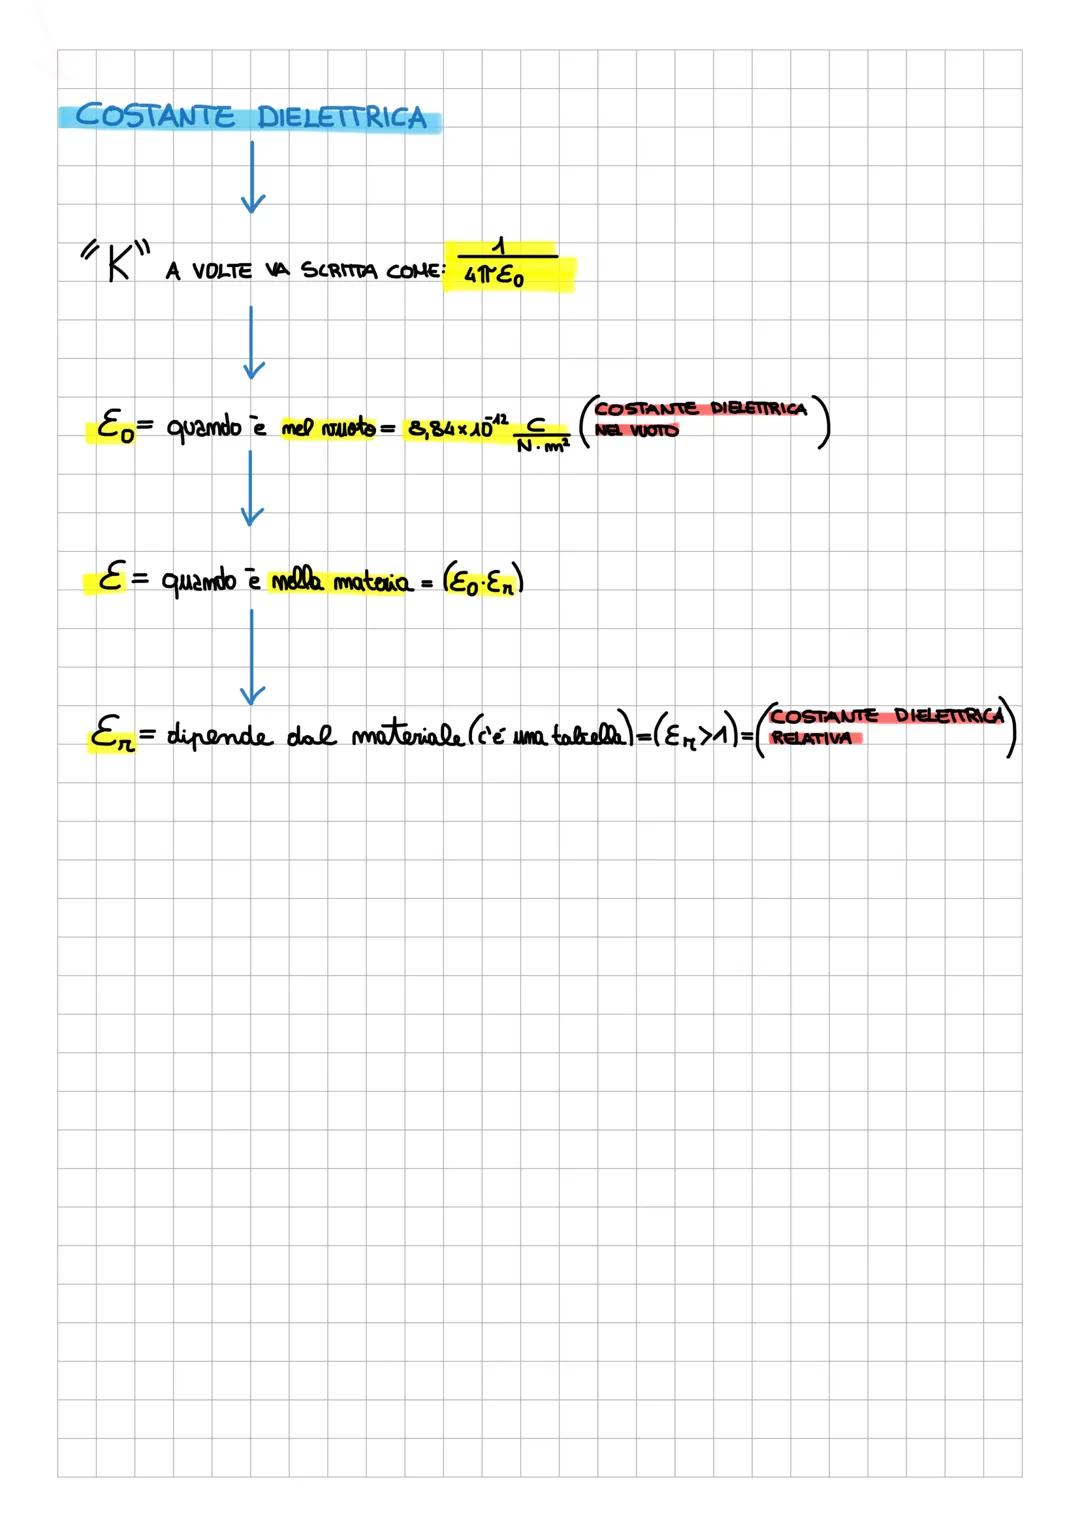 COSTANTE DIELETTRICA
"K" A VOLTE VA SCRITTA COME: 1/4πε₀
ε₀ = quando è nel vuoto = 8,84×10⁻¹² C/N·m² (COSTANTE DIELETTRICA NEL VUOTO)
ε = quando è nella materia = (ε₀·εr)
εr = dipende dal materiale (c'é una tabella) = (εr>1) = (COSTANTE DIELETTRICA RELATIVA)